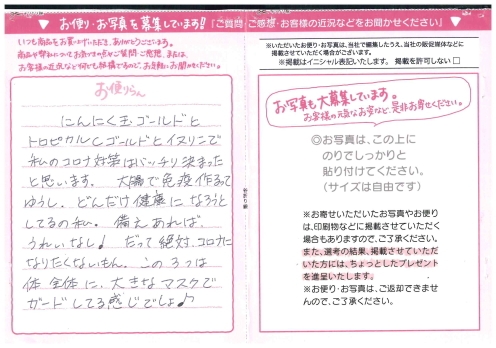 ▼ お便り・お写真を募集しています!! 「ご質問、ご感想・お客様の近況などをお聞かせください」 ▼
いつも商品をお買上げいただき、ありがとうございます。
お客様の近況など何でも結構ですので、お気軽にお聞かせください。
お便りらん
にんにく玉ゴールドと
トロピカルCゴールドとイヌリンで
私のコロナ対策はバッチリ決まった
と思います。大腸で免疫作るって
ゆうし、どんだけ健康になろうと
してるの私。備えあれば
うれいなし♪ だって絶対コロナに
なりたくないもん。この3つは
体全体に、大きなマスクで
ガードしてる感じでしょ♪
※いただいたお便り・お写真は、当社で編集したうえ、当社の販促媒体などに
掲載させていただく場合がございます。
※掲載はイニシャル表記いたします。 掲載を許可しない □
お写真も大募集しています。
お客様の元気なお姿など、是非お寄せください。
◎お写真は、この上に
のりでしっかりと
貼り付けてください。
(サイズは自由です)
※お寄せいただいたお写真やお便り
は、印刷物などに掲載させていただく
場合もありますので、ご了承ください。
また、選考の結果、掲載させていただ
いた方には、ちょっとしたプレゼント
を進呈いたします。
※お便り・お写真は、ご返却できませ
んので、ご了承ください。